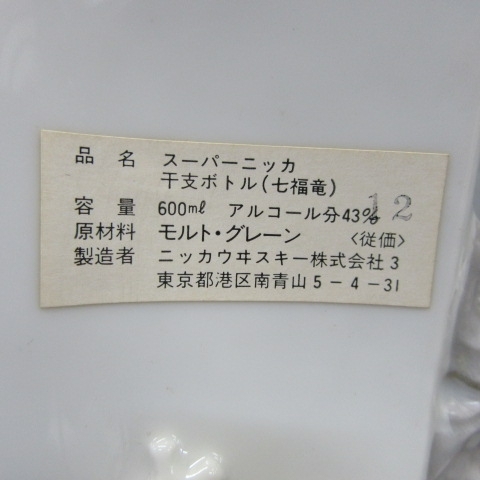 品名 スーパーニッカ
干支ボトル(七福竜)
容量 600ml アルコール分43% 12
原材料 モルト・グレーン 〈従価〉
製造者 ニッカウヰスキー株式会社3
東京都港区南青山5-4-31